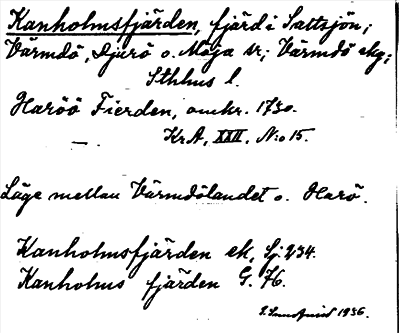 Kanholmsfjärden, fjärd i Saltsjön;
Värmdö, Djurö o. Möja sr; Värmdö skg;
Sthlms l.
Haröö Fierden, omkr. 1730.
— KrA, XXII, N:o 15.
Läge mellan Värmdölandet o. Harö.
Kanholmsfjärden ek, Sj. 234.
Kanholms fjärden G. 76.
1936.